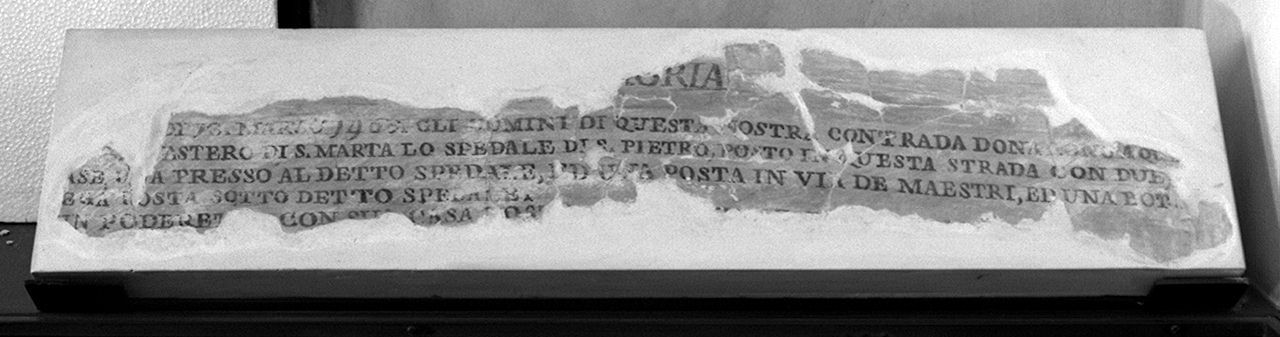 ORIA
DI 18. MARZO 1465. GLI UOMINI DI QUESTA NOSTRA CONTRADA DONARONO
ASTERO DI S. MARTA LO SPEDALE DI S. PIETRO, POSTO IN QUESTA STRADA CON DUE
ASE, UNA PRESSO AL DETTO SPEDALE, ED UNA POSTA IN VIA DE MAESTRI, ED UNA BOT
EGA POSTA SOTTO DETTO SPEDALE
UN PODERET CON SUA CASA